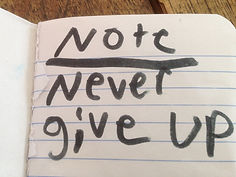 Note
Never
give up